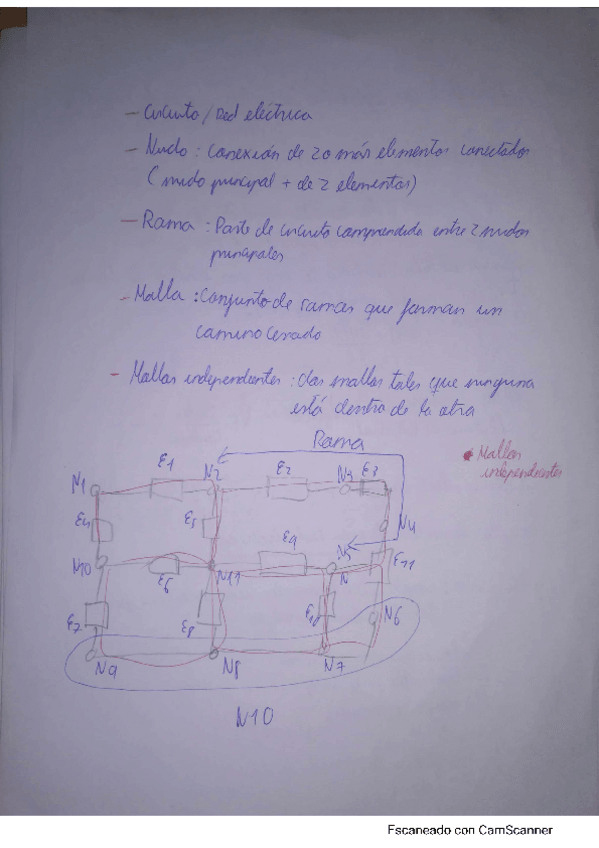 - Circuito / Red eléctrica
- Nudo : conexión de 2 o más elementos conectados
( nudo principal + de 2 elementos)
- Rama : Parte de circuito comprendida entre 2 nudos
principales
- Malla : Conjunto de ramas que forman un
camino cerrado
- Mallas independientes : dos mallas tales que ninguna
está dentro de la otra
Rama
Mallas
independientes
N1 E1 N2 E2 N3 E3
E4 E5 N4
N10 E6 N11 E9 N5 N E11
E7 E8 E10 N6
N9 N8 N7
N10
Escaneado con CamScanner